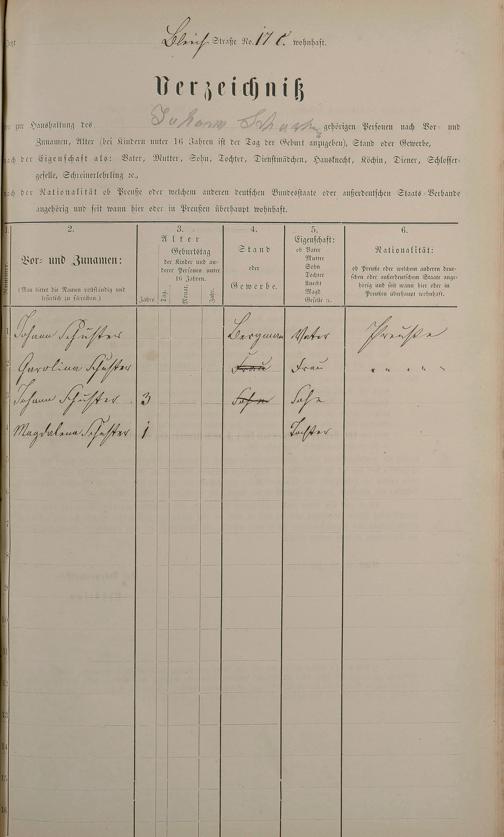 Bleich Straße No. 17 c. wohnhaft.
Verzeichniß
zur Haushaltung des Johann Schuster gehörigen Personen nach Vor- und
Zunamen, Alter (bei Kindern unter 16 Jahren ist der Tag der Geburt anzugeben), Stand oder Gewerbe,
nach der Eigenschaft als: Vater, Mutter, Sohn, Tochter, Dienstmädchen, Hausknecht, Köchin, Diener, Schlosser-
geselle, Schreinerlehrling ꝛc.,
nach der Nationalität ob Preuße oder welchem anderen deutschen Bundesstaate oder außerdeutschen Staats-Verbande
angehörig und seit wann hier oder in Preußen überhaupt wohnhaft.
1. 2. 3. 4. 5. 6.
Vor- und Zunamen:
(Man bittet die Namen vollständig und
leserlich zu schreiben.)
Alter
Geburtstag
der Kinder und an-
derer Personen unter
16 Jahren.
Jahre. Tag. Monat. Jahr.
Stand
oder
Gewerbe.
Eigenschaft:
ob Vater
Mutter
Sohn
Tochter
Knecht
Magd
Geselle ꝛc.
Nationalität:
ob Preuße oder welchem anderen deut-
schen oder außerdeutschen Staate ange-
hörig und seit wann hier oder in
Preußen überhaupt wohnhaft.
1 Johann Schuster Bergman Vater Preuße
2 Carolina Schuster Frau Frau " " " " "
3 Johann Schuster 3 Sohn Sohn
4 Magdalena Schuster 1 Tochter